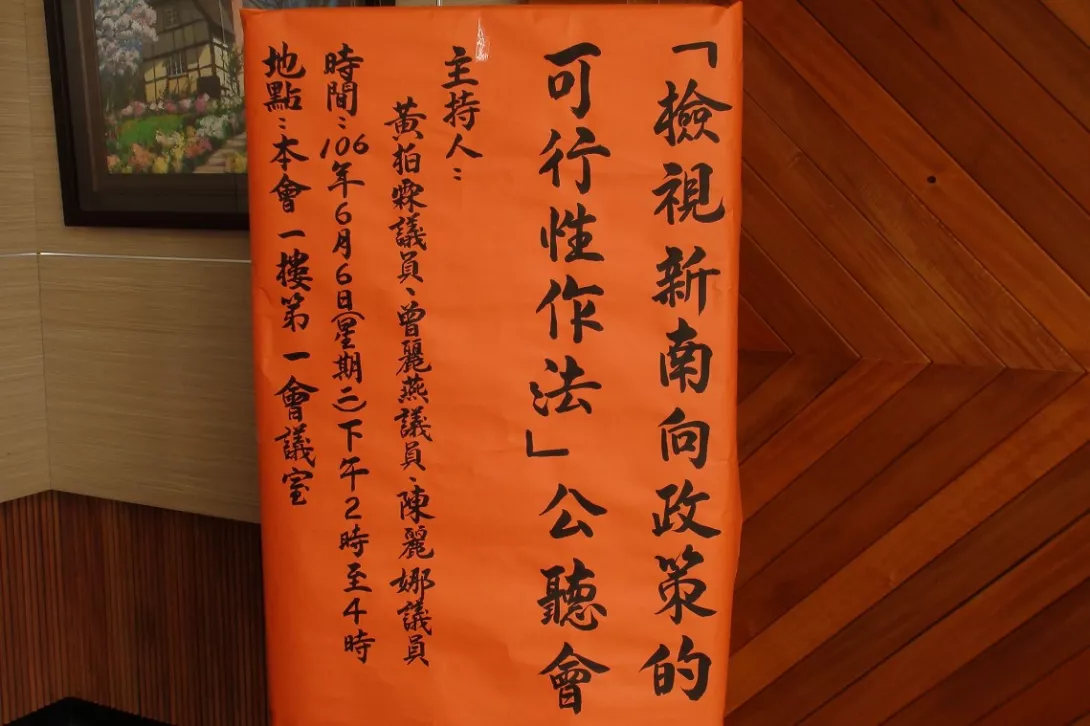 「檢視新南向政策的
可行性作法」公聽會
主持人：
黃柏霖議員、曾麗燕議員、陳麗娜議員
時間：106年6月6日(星期二)下午2時至4時
地點：本會一樓第一會議室